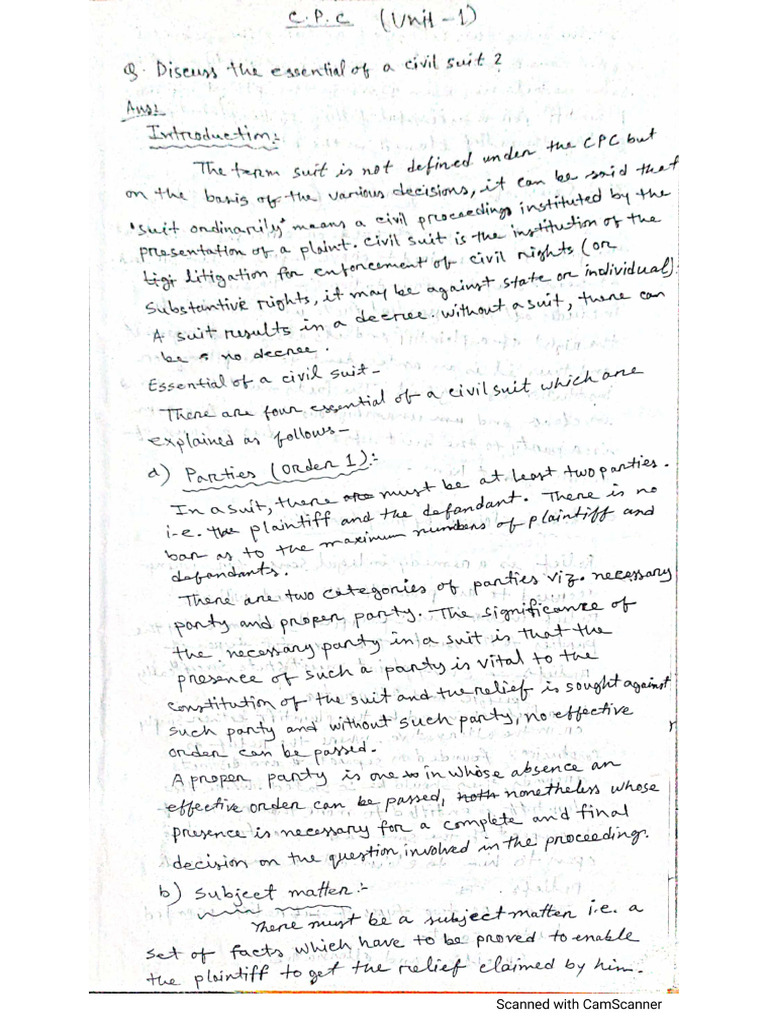 C.P.C (Unit-1)
Q. Discuss the essential of a civil suit?
Ans:
Introduction:-
The term suit is not defined under the CPC but
on the basis of the various decisions, it can be said that
'suit ordinarily' means a civil proceeding instituted by the
presentation of a plaint. Civil suit is the institution of the
litigation for enforcement of civil rights (or
substantive rights, it may be against state or individual).
A suit results in a decree. without a suit, there can
be no decree.
Essential of a civil suit-
There are four essential of a civil suit which are
explained as follows-
a) Parties (order 1):-
In a suit, there must be at least two parties.
i.e. the plaintiff and the defandant. There is no
bar as to the maximum numbers of plaintiff and
defandants.
There are two categories of parties viz. necessary
party and proper party. The significance of
the necessary party in a suit is that the
presence of such a party is vital to the
constitution of the suit and the relief is sought against
such party and without such party, no effective
order can be passed.
A proper party is one in whose absence an
effective order can be passed, nonetheless whose
presence is necessary for a complete and final
decision on the question involved in the proceeding.
b) Subject matter:-
There must be a subject matter i.e. a
set of facts which have to be proved to enable
the plaintiff to get the relief claimed by him.
Scanned with CamScanner